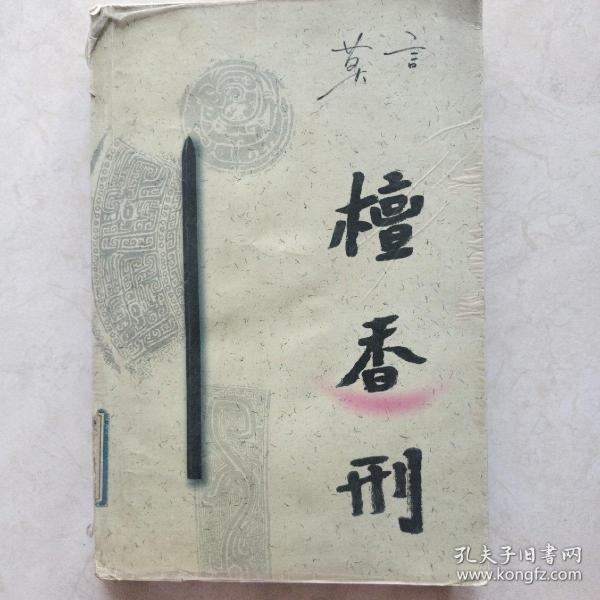 莫言
檀香刑
孔夫子旧书网
www.kongfz.com